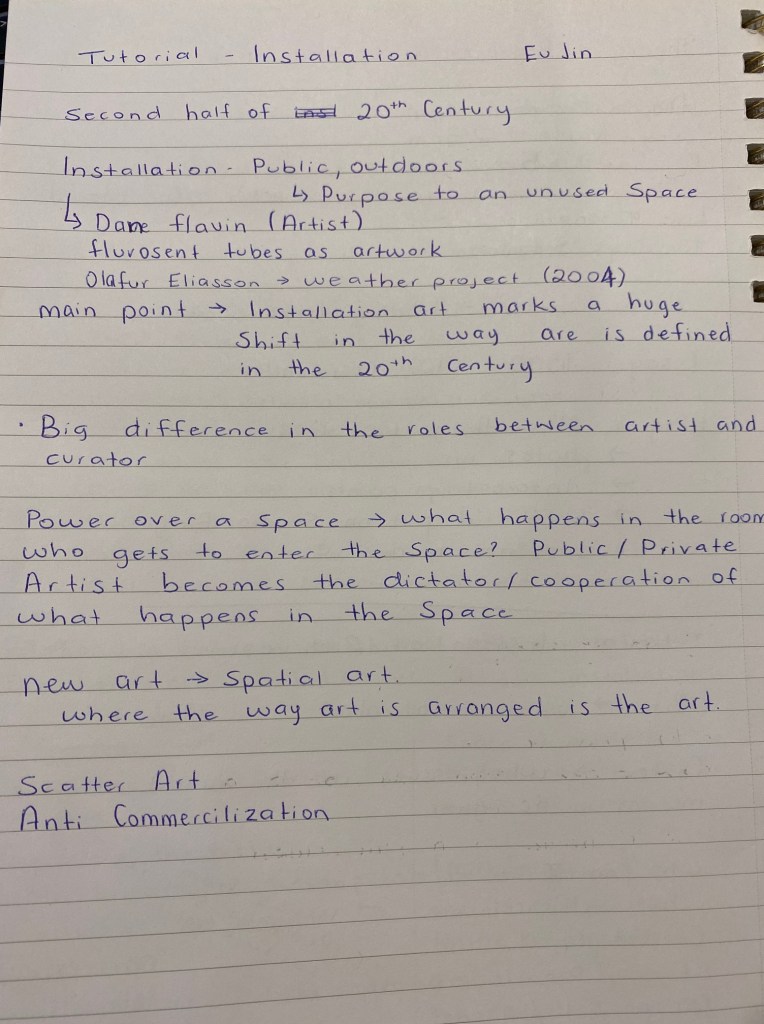 Tutorial - Installation Eu Jin
Second half of 20th Century
Installation - Public, outdoors
↳ Purpose to an unused Space
↳ Dane flavin (Artist)
flurosent tubes as artwork
Olafur Eliasson → weather project (2004)
main point → Installation art marks a huge
Shift in the way are is defined
in the 20th Century
• Big difference in the roles between artist and
curator
Power over a space → what happens in the room
who gets to enter the space? Public / Private
Artist becomes the dictator / cooperation of
what happens in the Space
new art → Spatial art.
where the way art is arranged is the art.
Scatter Art
Anti Commercilization